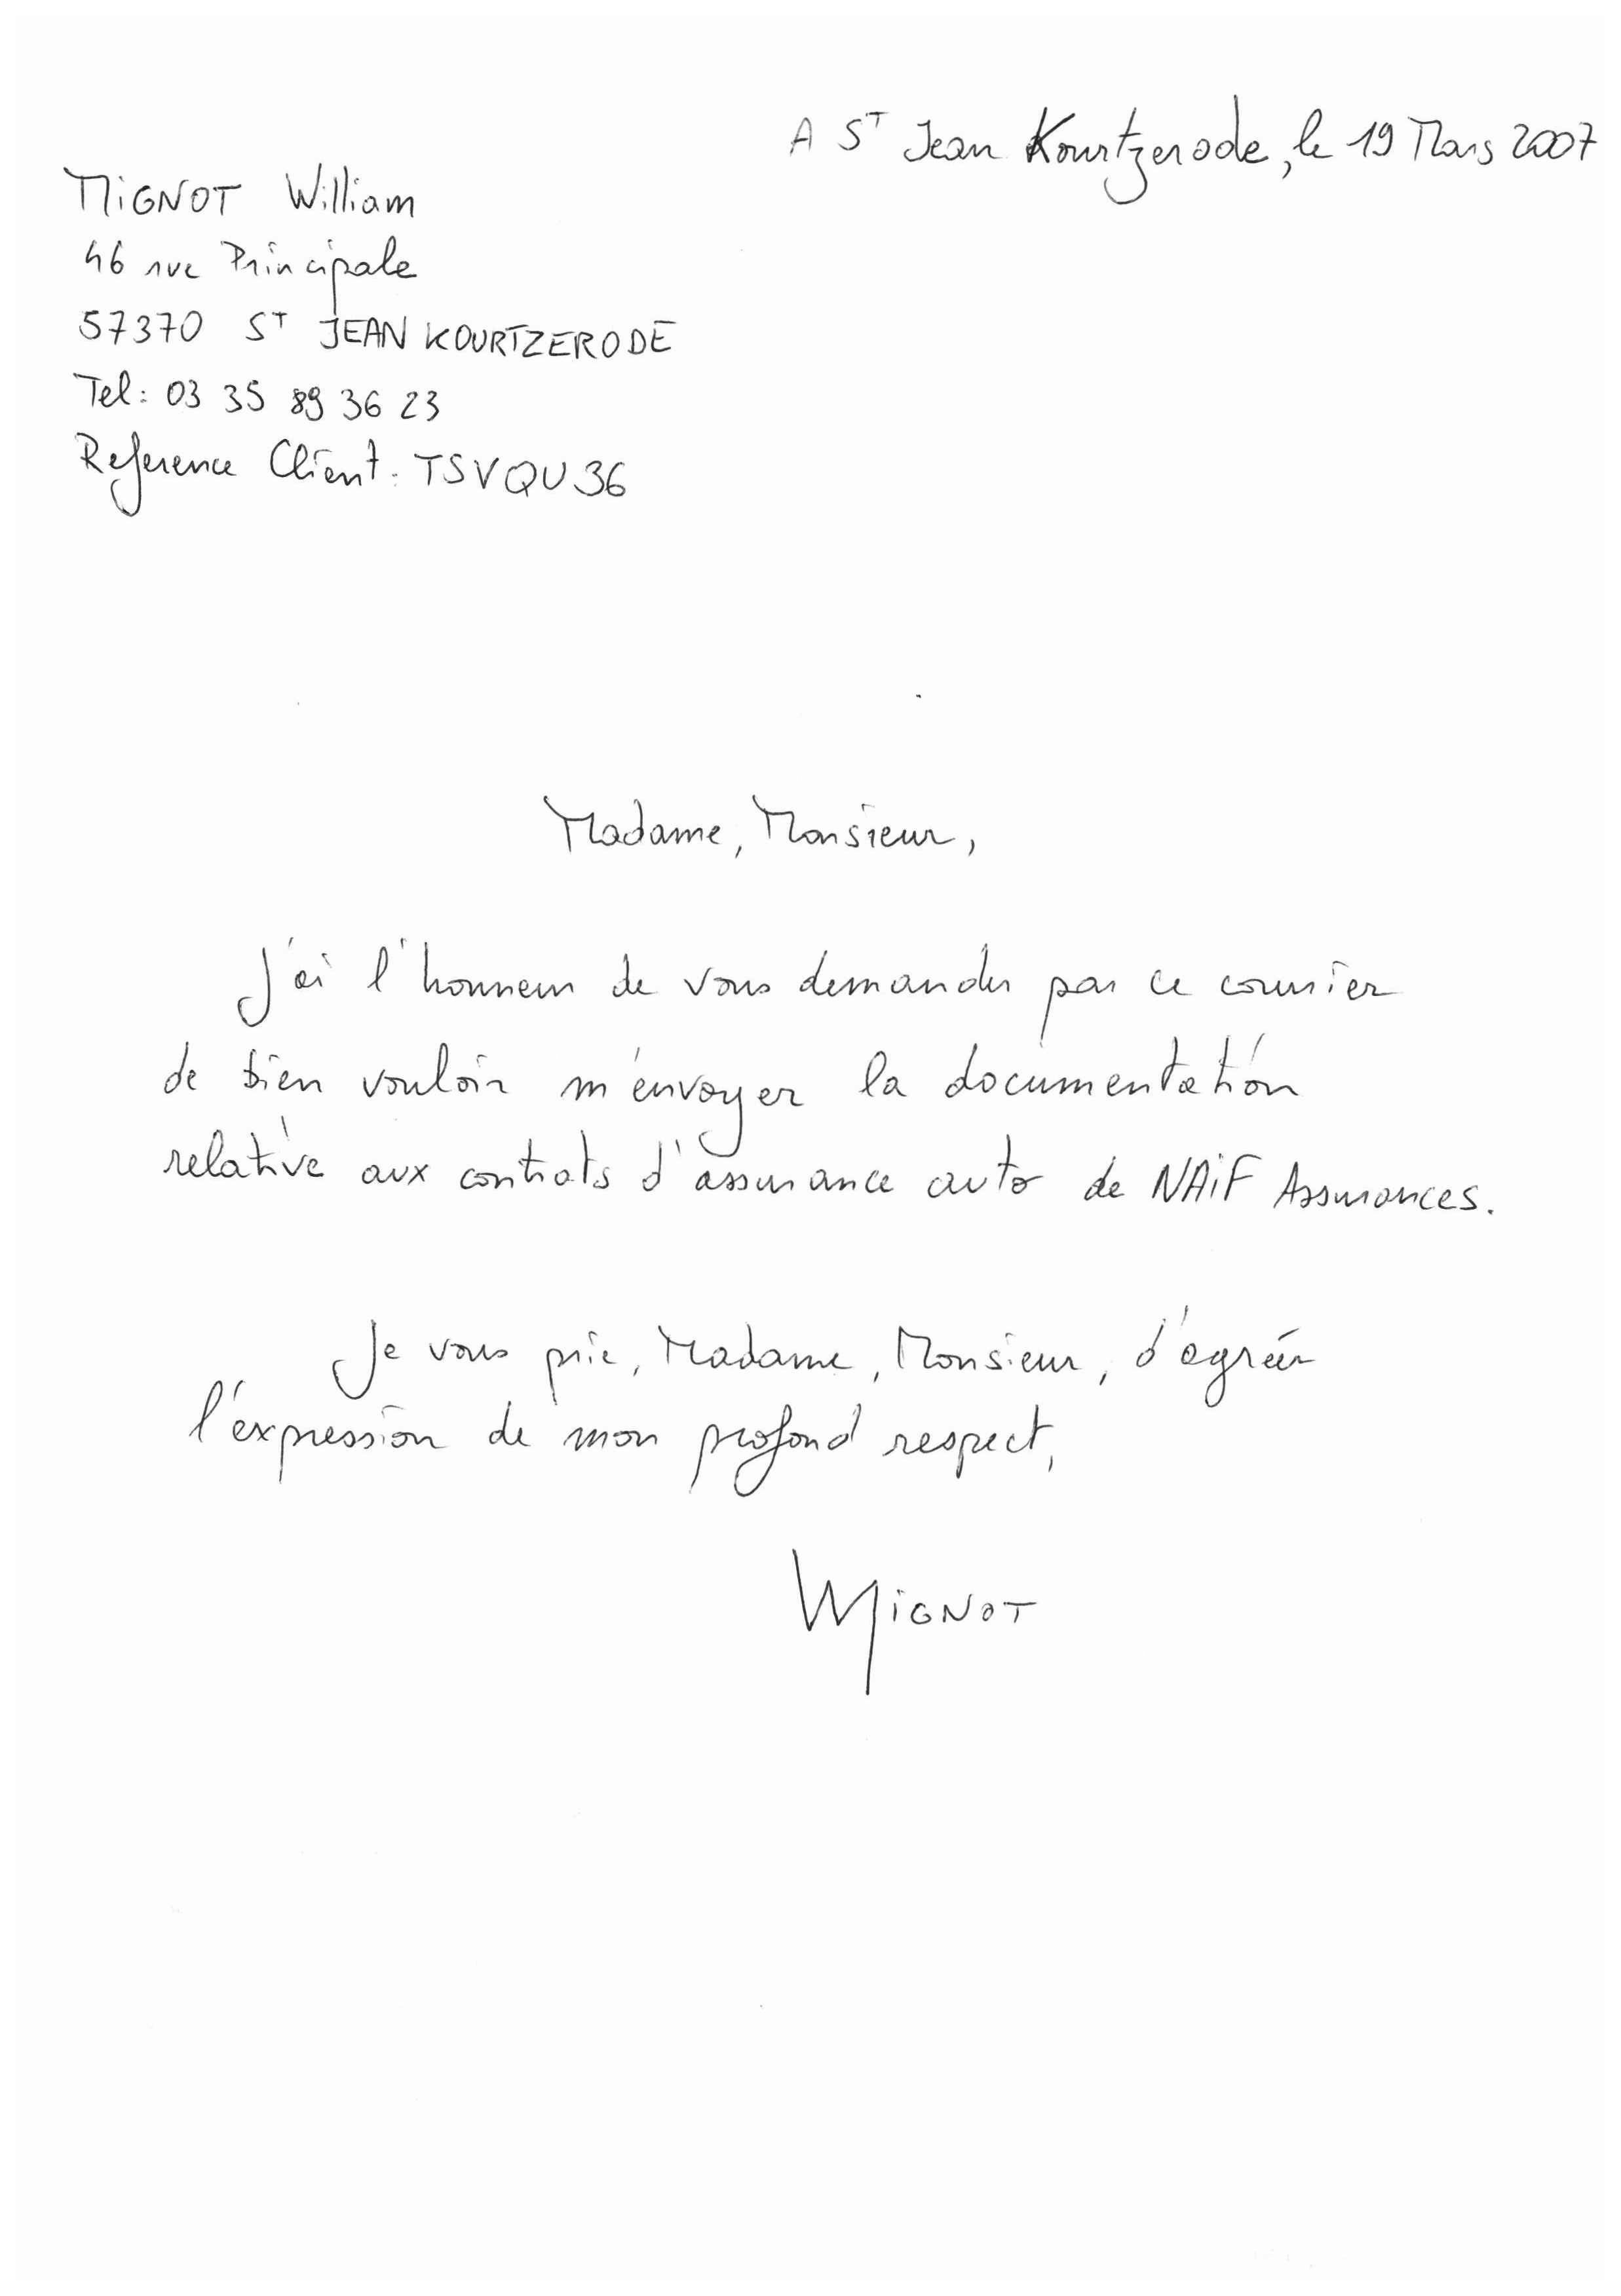 A ST Jean Kourtzerode, le 19 Mars 2007
MiGNOT William
46 rue Principale
57370 ST JEAN KOURTZERODE
Tel: 03 35 89 36 23
Reference Client: TSVQU36
Madame, Monsieur,
J'ai l'honneur de vous demander par ce courrier
de bien vouloir m'envoyer la documentation
relative aux contrats d'assurance auto de NAiF Assurances.
Je vous prie, Madame, Monsieur, d'agréer
l'expression de mon profond respect,
WMiGNOT